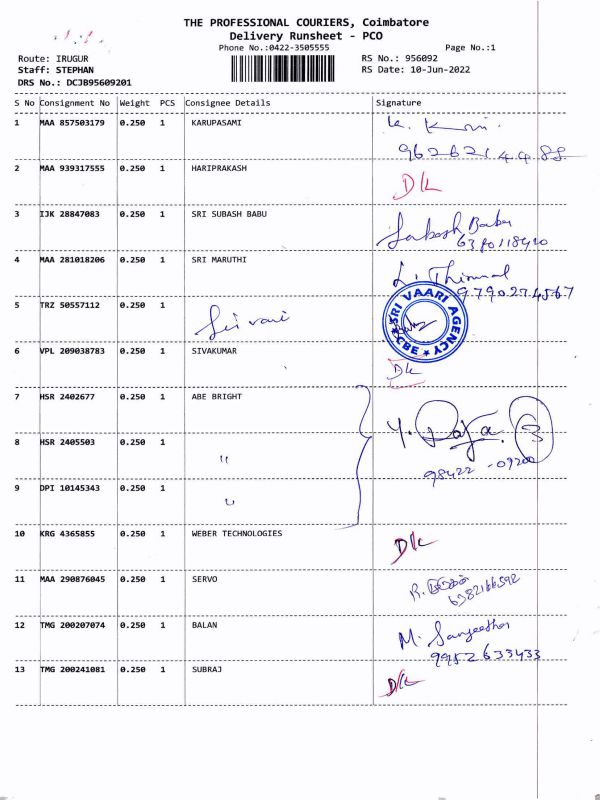 THE PROFESSIONAL COURIERS, Coimbatore
Delivery Runsheet - PCO
Phone No.:0422-3505555 Page No.:1
Route: IRUGUR RS No.: 956092
Staff: STEPHAN RS Date: 10-Jun-2022
DRS No.: DCJB95609201
S No Consignment No Weight PCS Consignee Details Signature
1 MAA 857503179 0.250 1 KARUPASAMI
2 MAA 939317555 0.250 1 HARIPRAKASH D/L
3 IJK 28847083 0.250 1 SRI SUBASH BABU Subash Babu
4 MAA 281018206 0.250 1 SRI MARUTHI
9790274567
5 TRZ 50557112 0.250 1 Sri vari SRI VAARI AGENCY CBE
6 VPL 209038783 0.250 1 SIVAKUMAR D/L
7 HSR 2402677 0.250 1 ABE BRIGHT
8 HSR 2405503 0.250 1 "
98422-09200
9 DPI 10145343 0.250 1 "
10 KRG 4365855 0.250 1 WEBER TECHNOLOGIES D/L
11 MAA 290876045 0.250 1 SERVO
6382166592
12 TMG 200207074 0.250 1 BALAN M. Sangeetha
9952633433
13 TMG 200241081 0.250 1 SUBRAJ D/L